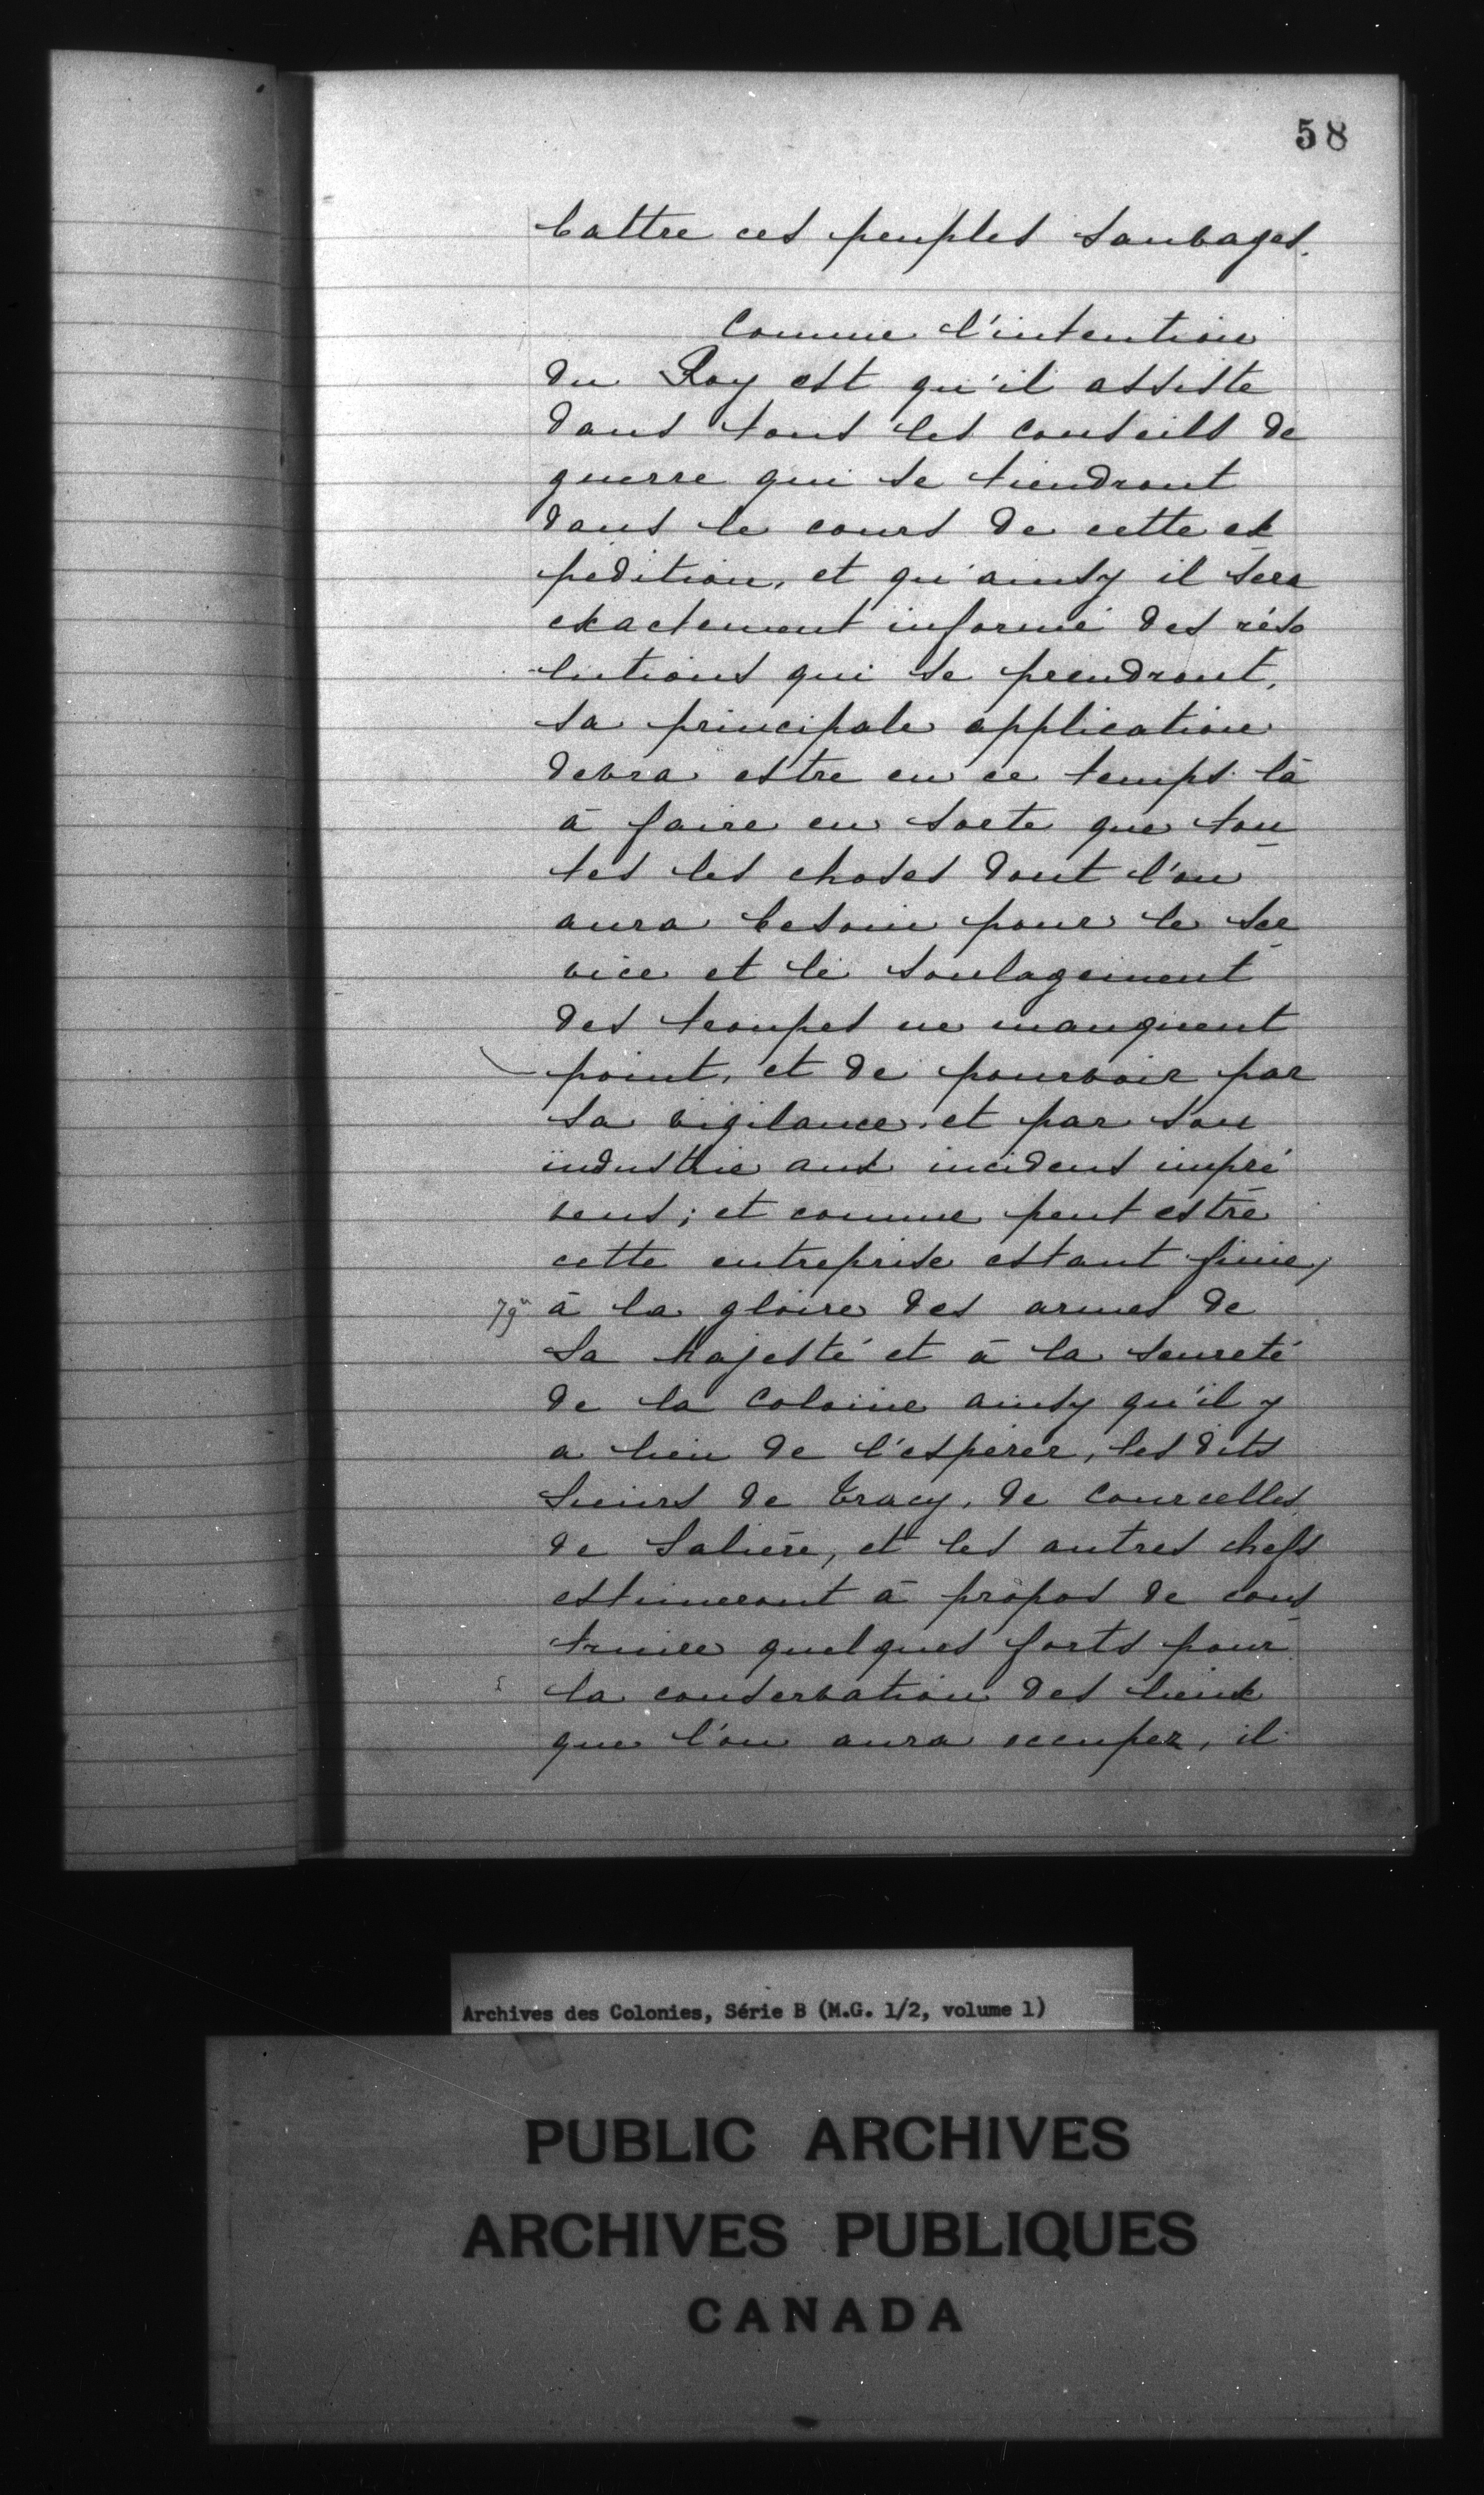 58
battre ces peuples sauvages.
Comme l'intention
du Roy est qu'il assiste
dans tous les conseils de
guerre qui se tiendront
dans le cours de cette ex
pédition, et qu'ainsy il sera
exactement informé des réso
lutions qui se prendront,
sa principale application
devra estre en ce temps là
à faire en sorte que tou
tes les choses dont l'on
aura besoin pour le ser
vice et le soulagement
des troupes ne manquent
point, et de pourvoir par
sa vigilance et par son
industrie aux incidens impré
veus; et comme peut estre
cette entreprise estant finie,
à la gloire des armes de
Sa Majesté et à la seureté
de la Colonie ainsy qu'il y
a lieu de l'espérer, les dits
Sieurs de Tracy, de Courcelles
de Salière, et les autres chefs
estimeront à propos de cons
truire quelques forts pour
la conservation des lieux
que l'on aura occupez, il
Archives des Colonies, Série B (M.G. 1/2, volume 1)
PUBLIC ARCHIVES
ARCHIVES PUBLIQUES
CANADA